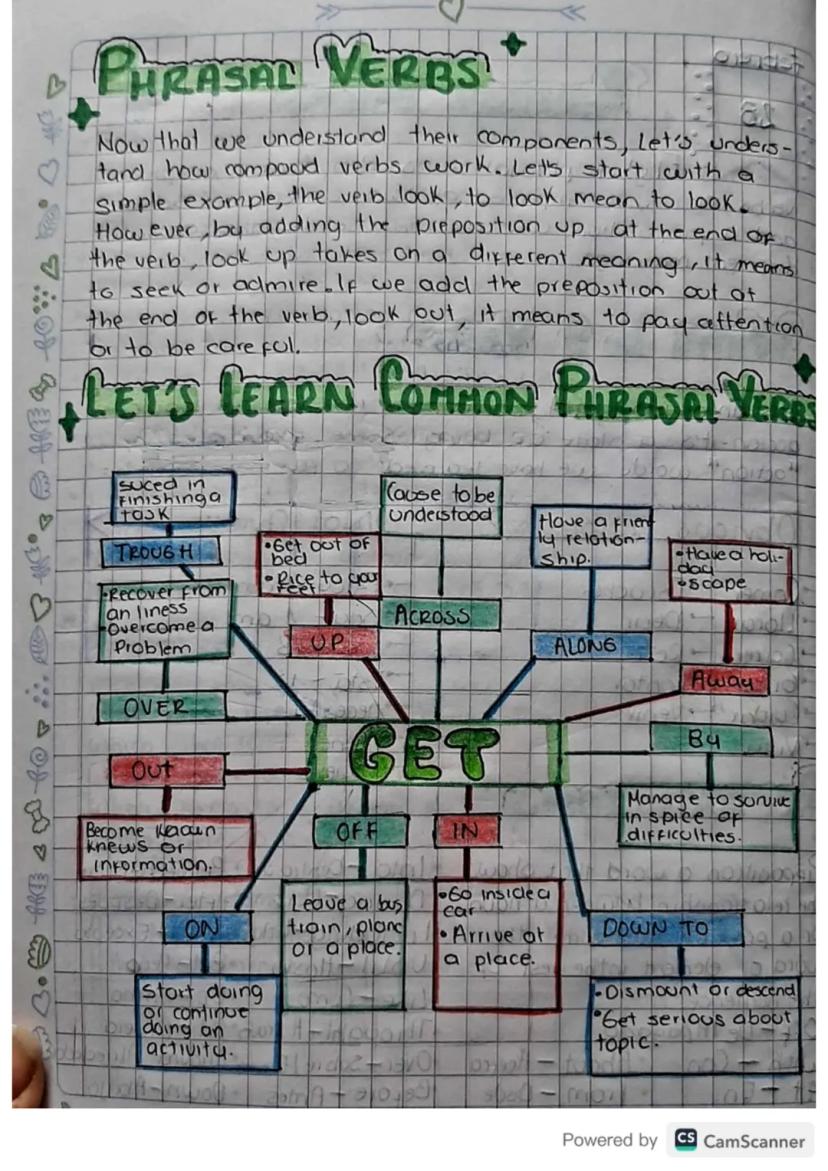 PHRASAL VERBS
Now that we understand their components, Let's unders-
tand how compood verbs work. Let's start with a
simple example, the verb look, to look mean to look.
However, by adding the preposition up at the end of
the verb, look up takes on a different meaning, it means
to seek or admire. If we add the preposition out at
the end of the verb, look out, it means to pay attention
or to be careful.
LET'S LEARN COMMON PHRASAL VERBS
suced in
finishing a
task
TROUGH
•Recover from
an liness
•overcome a
Problem
OVER
•Get out of
bed
•Rice to your
feet
UP
Cause to be
understood
ACROSS
Have a frien
ly relation-
ship.
ALONG
•Have a holi-
day
•scape
Away
GET
By
Manage to survive
in spice of
difficulties.
Out
Become
knews or
information.
OFF
Leave a bus,
train, plane
or a place.
IN
•Go inside a
car
•Arrive at
a place.
ON
Start doing
or continue
doing an
activity.
DOWN TO
•Dismount or descend
•Get serious about
topic.
Powered by CS CamScanner